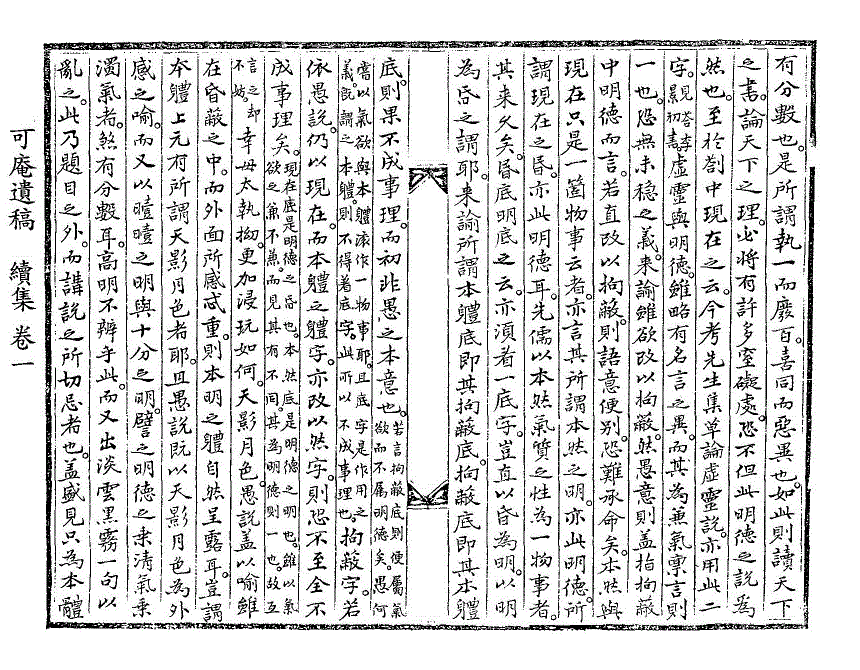 有分數也。是所謂執一而廢百。喜同而惡異也。如此則讀天下
之書。論天下之理。必將有許多窒礙處。恐不但此明德之說爲
然也。至於劄中現在之云。今考先生集單論虛靈說。亦用此二
字。見答李景初書 虛靈與明德。雖略有名言之異。而其爲兼氣稟言則
一也。恐無未穩之義。来諭雖欲改以拘蔽。然愚意則盖指拘蔽
中明德而言。若直改以拘蔽。則語意便別。恐難承命矣。本然與
現在只是一箇物事云者。亦言其所謂本然之明。亦此明德。所
謂現在之昏。亦此明德耳。先儒以本然氣質之性為一物事者。
其来久矣。昏底明底之云。亦須着一底字。豈直以昏為明。以明
為昏之謂耶。来諭所謂本軆底即其拘蔽底。拘蔽底即其本軆
底。則果不成事理。而初非愚之本意也。若言拘蔽底則便屬氣欲而不屬明德矣。愚何
嘗以氣欲與本軆滚作一物事耶。且底字是作用之義。說謂之本軆。則不得著底字。此所以不成事理也。拘蔽字。若
依愚說仍以現在。而本軆之軆字。亦改以然字。則恐不至全不
成事理矣。現在底是明德之昏也。本然底是明德之明也。雖以氣欲之兼不兼。而見其有不同。其為明德則一也。故互
言之却不妨。 幸毋太執拗。更加浸玩如何。天影月色。愚說盖以喻雖
在昏蔽之中。而外面所感忒重。則本明之軆。自然呈露耳。豈謂
本軆上元有所謂天影月色者耶。且愚說既以天影月色為外
感之喻。而又以曀曀之明與十分之明。譬之明德之乗清氣乗
濁氣者。煞有分數耳。高明不辨乎此。而又出淡雲黑霧一句以
亂之。此乃題目之外。而講說之所切忌者也。盖盛見只為本軆
可庵遺稿 續集 卷一